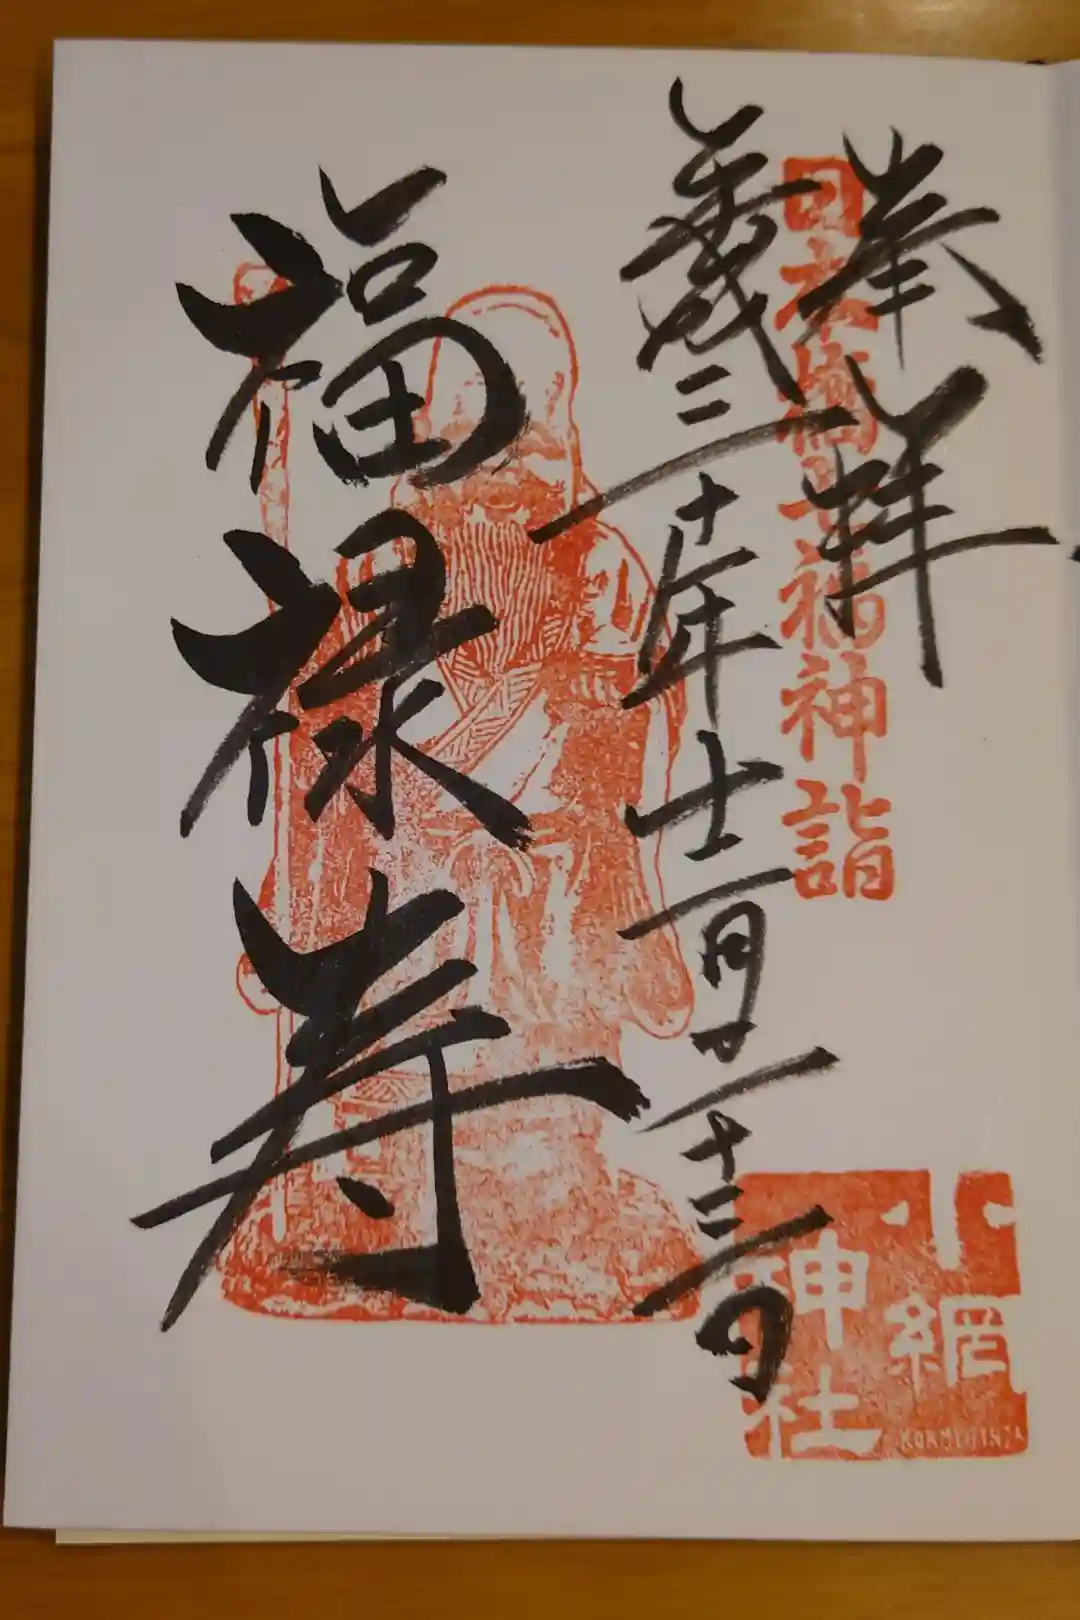 奉拝
日本橋七福神詣
平成三十年十二月二十三日
福禄寿
小網
神社
KOAMIJINJA